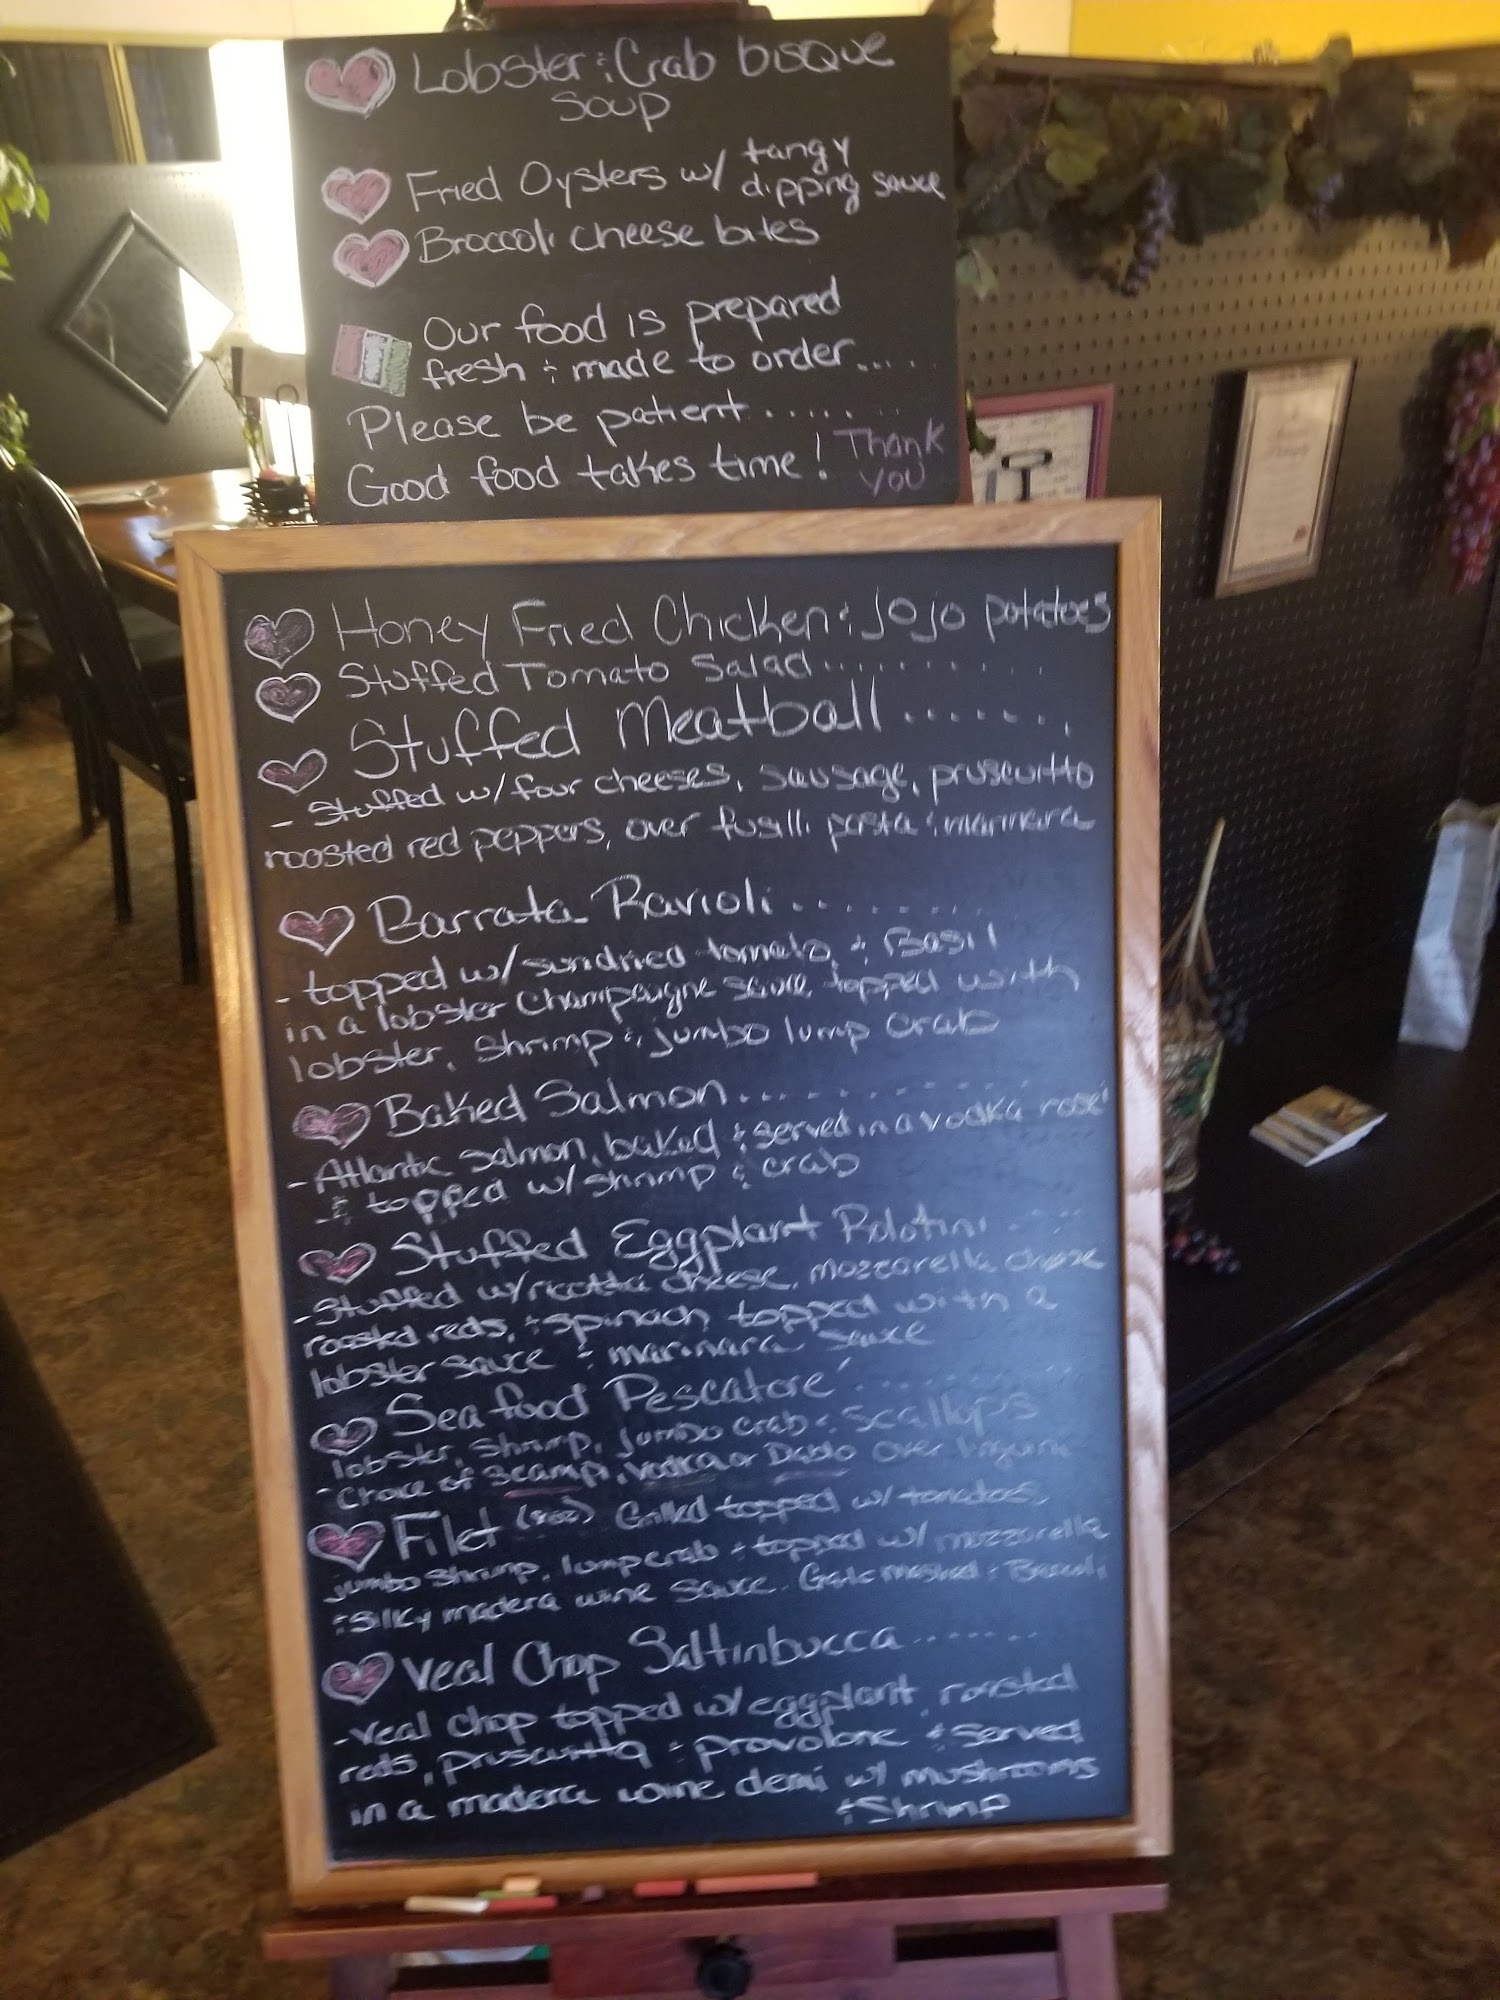 Lobster & Crab bisque
soup
Fried Oysters w/ tangy
dipping sauce
Broccoli cheese bites
Our food is prepared
fresh & made to order.....
Please be patient........
Good food takes time! Thank
you
Honey Fried Chicken & Jojo potatoes
Stuffed Tomato Salad...........
Stuffed Meatball.......
- Stuffed w/ four cheeses, sausage, pruscuitto
roosted red peppers, over fusilli pasta & marinara
Barrata Ravioli........
- topped w/ sundried tomato & Basil
in a lobster Champaigne sauce, topped with
lobster, shrimp & jumbo lump crab
Baked Salmon...........
- Atlantic salmon, baked & served in a vodka rosé
- & topped w/ shrimp & crab
Stuffed Eggplant Rolotini....
- Stuffed w/ ricotta cheese, mozzarella cheese
roasted reds, & spinach topped with a
lobster sauce & marinara sauce
Seafood Pescatore.........
lobster, shrimp, Jumbo crab & scallops
- choice of scampi, vodka or Diablo over linguini
Filet (8oz) Grilled topped w/ tomatoes,
jumbo shrimp, lump crab & topped w/ mozzarella
& silky madera wine sauce. Garlic mashed & Broccoli
Veal Chop Saltinbucca.......
- Veal chop topped w/ eggplant, roasted
reds, pruscuitto & provolone & served
in a madera wine demi w/ mushrooms
& Shrimp